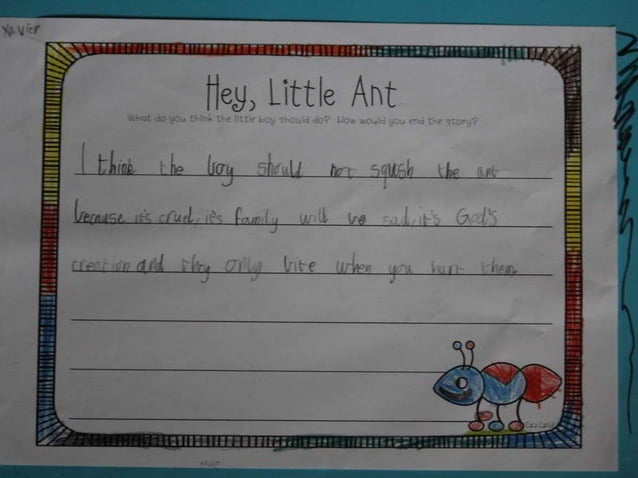 Xavier
Hey, Little Ant
What do you think the little boy should do? How would you end the story?
I think the boy should not squash the ant
because it's cruel, it's family will be sad, it's God's
creation and they only bite when you hurt them